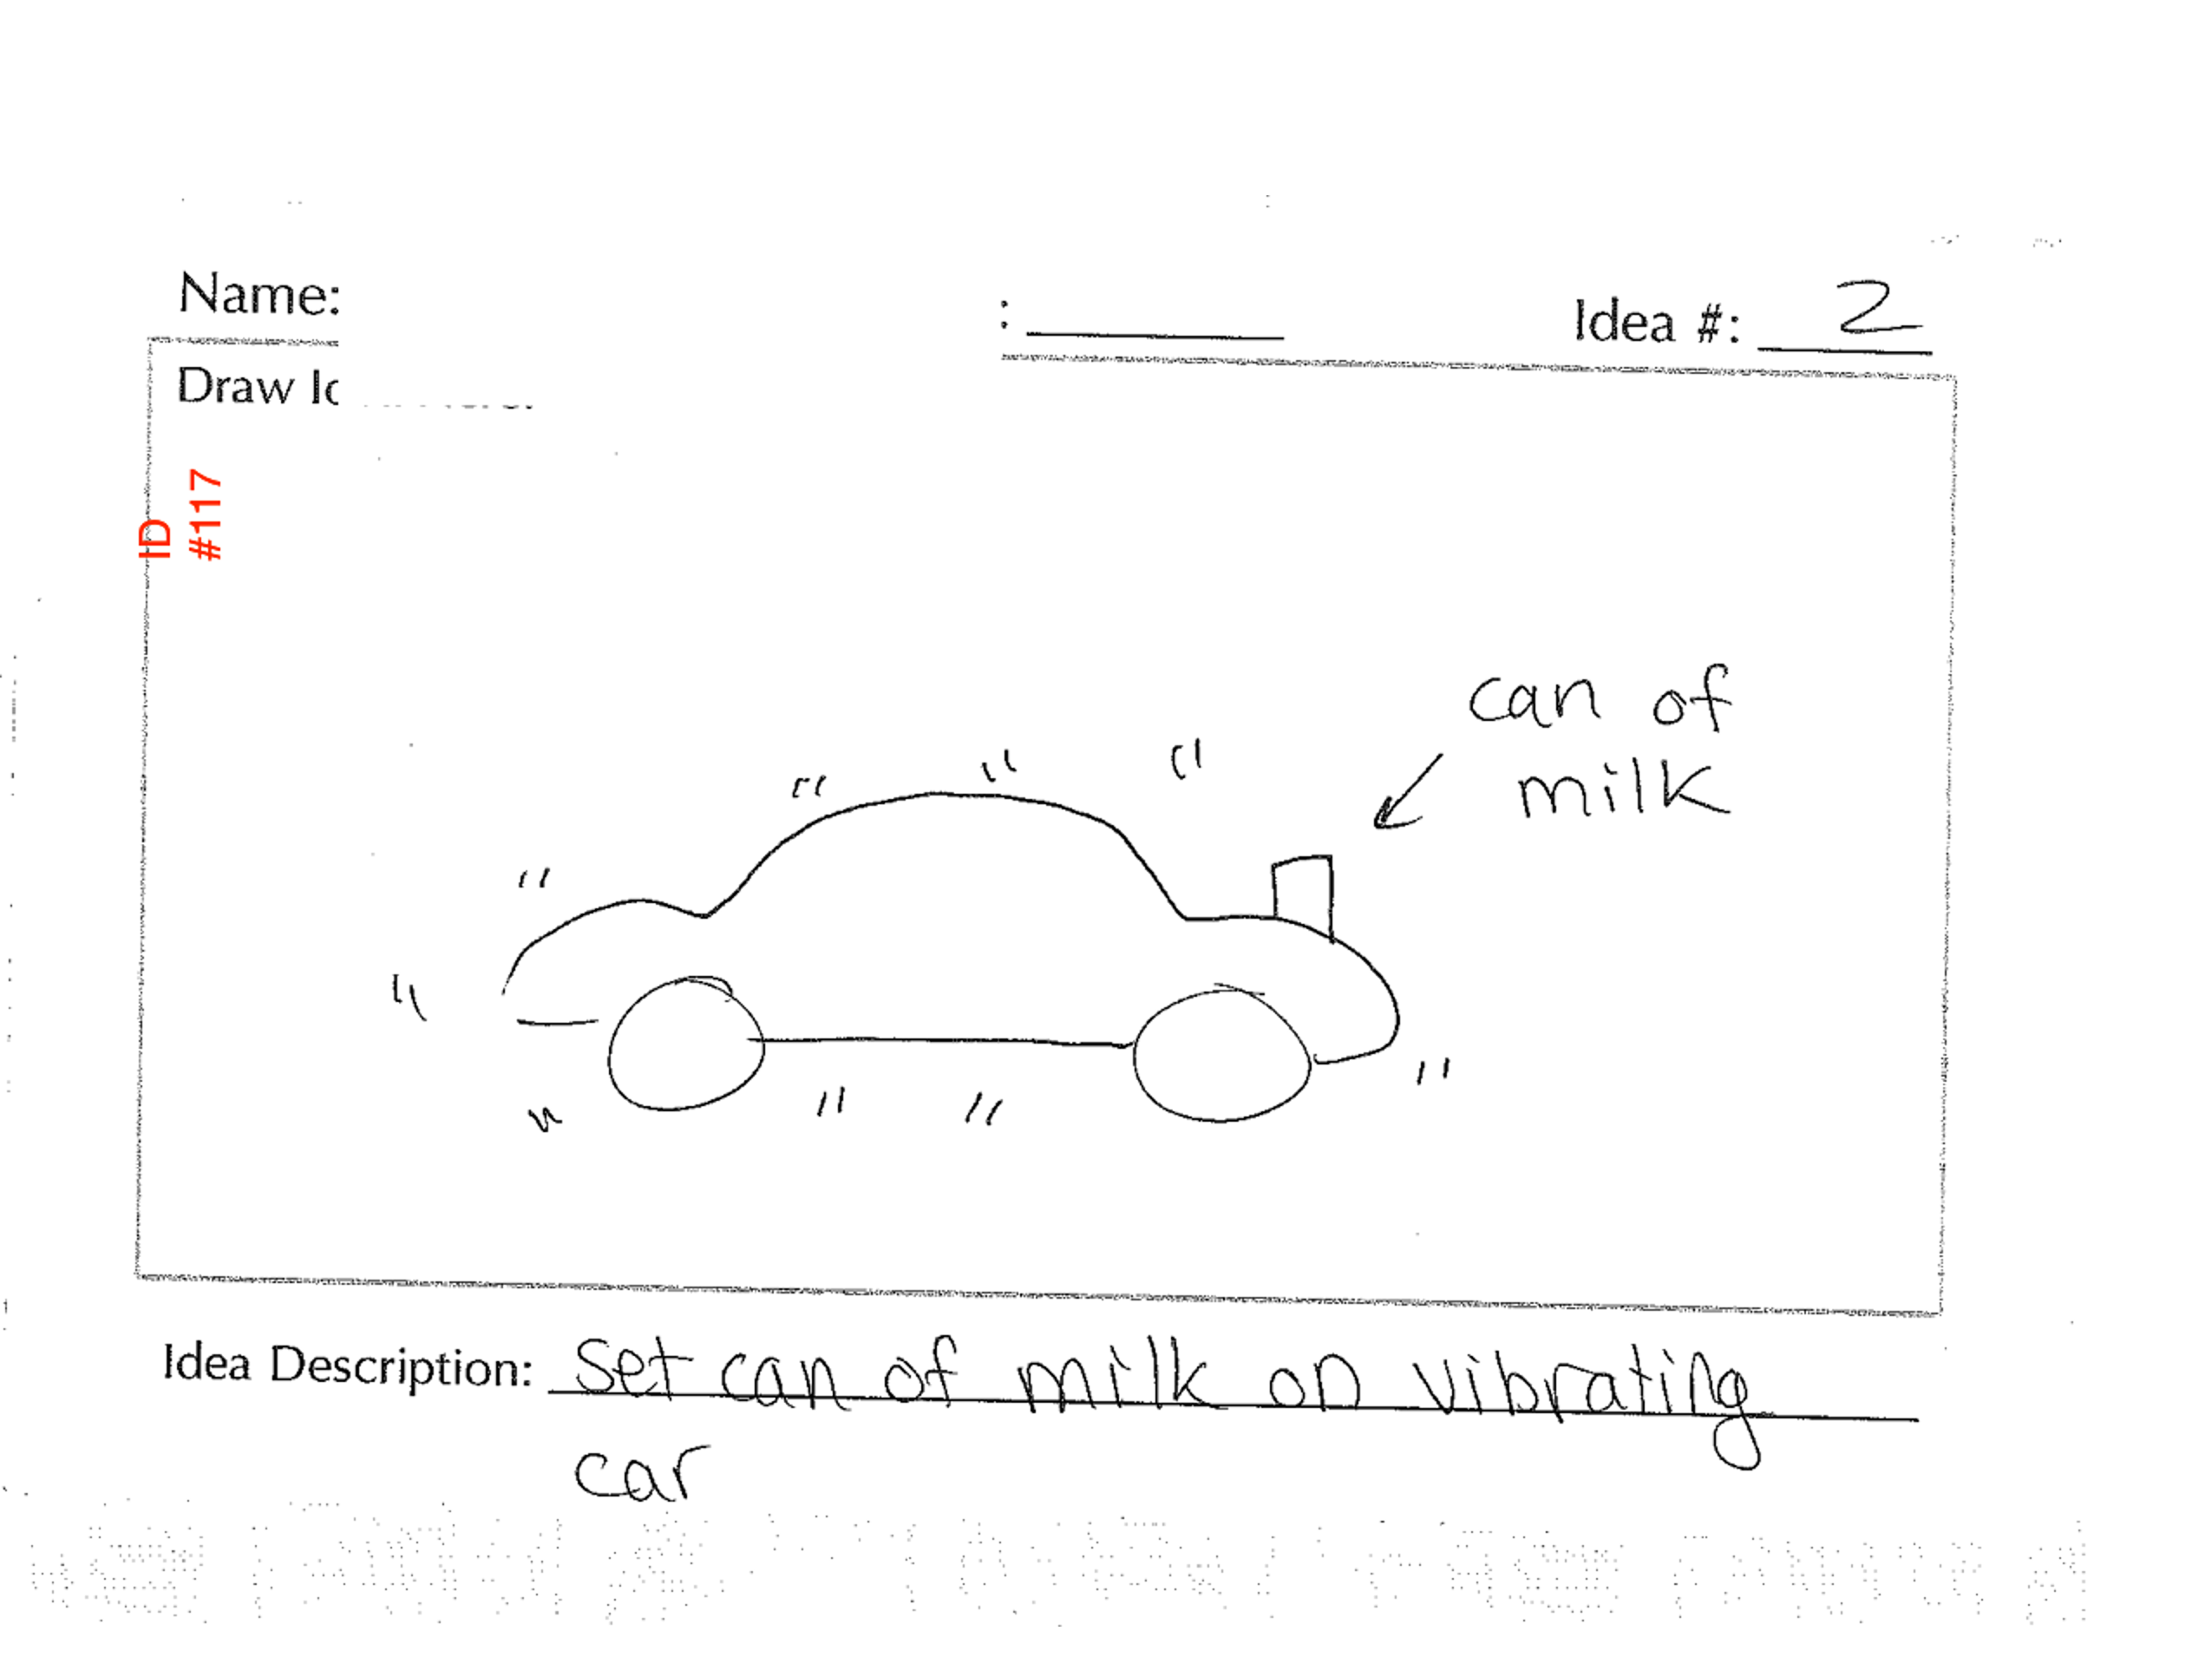 Name:
: Idea #: 2
Draw
ID
#117
can of
milk
Idea Description: Set can of milk on vibrating
car